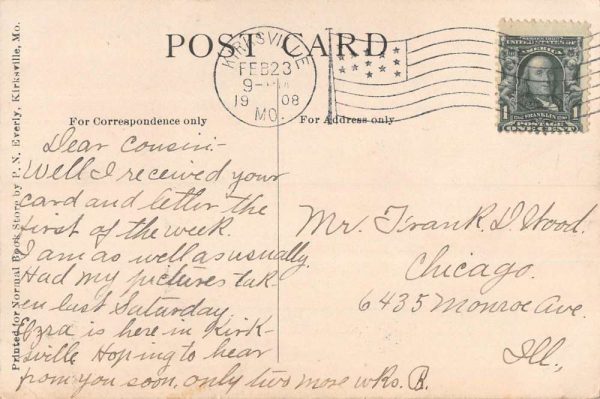 POST CARD
KIRKSVILLE
FEB 23
9-
1908
MO.
UNITED STATES OF AMERICA
1 FRANKLIN 1
POSTAGE
For Correspondence only
For Address only
Printed for Normal Book Store by P. N. Everly, Kirksville, Mo.
Dear cousin:-
Well I received your
card and letter the
first of the week.
I am as well as usually.
Had my pictures tak-
en last Saturday.
Ozra is here in Kirk-
sville. Hoping to hear
from you soon, only two more wks. R.
Mr. Frank D. Wood.
Chicago.
6435 Monroe Ave.
Ill.,